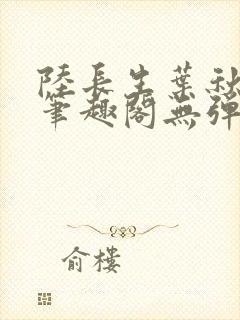 陸長生葉秋
筆趣閣無彈
俞樓